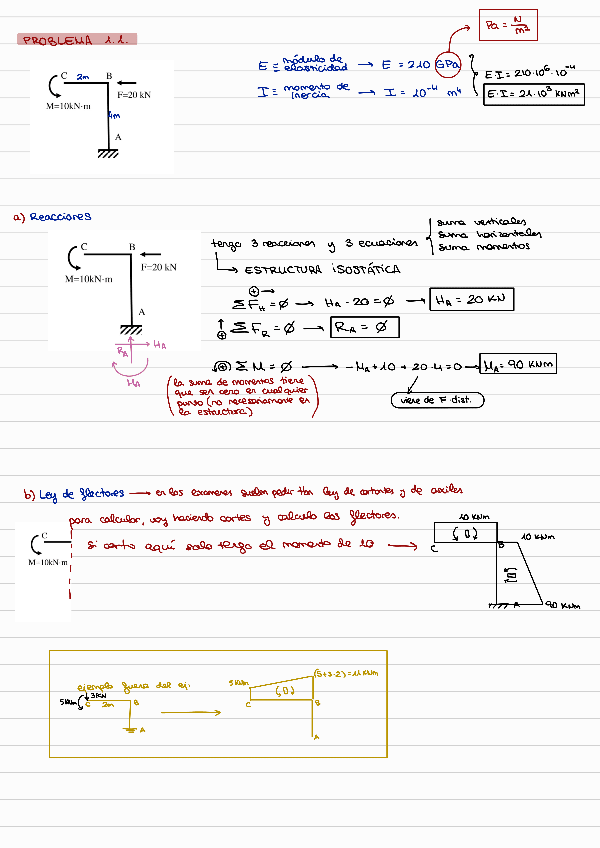 PROBLEMA 1.1.
Pa = N/m²
E = módulo de elasticidad → E = 210 GPa
I = momento de inercia → I = 10⁻⁴ m⁴
E I = 210·10⁶·10⁻⁴
E·I = 21·10³ KNm²
C 2m B
F=20 kN
M=10kN·m
4m
A
a) Reacciones
C B
F=20 kN
M=10kN·m
A
RA HA
MA
tengo 3 reacciones y 3 ecuaciones
suma verticales
suma horizontales
suma momentos
ESTRUCTURA ISOSTÁTICA
⊕→
ΣFH = 0 → HA - 20 = 0 → HA = 20 KN
↑⊕ ΣFR = 0 → RA = 0
⊕ ΣM = 0 → -MA + 10 + 20·4 = 0 → MA = 90 KNm
viene de F·dist.
(la suma de momentos tiene
que ser cero en cualquier
punto (no necesariamente en
la estructura))
b) Ley de flectores → en los examenes suelen pedir tbn ley de cortantes y de axiles
para calcular, voy haciendo cortes y calculo los flectores.
C
M=10kN·m
si corto aquí solo tengo el momento de 10 →
10 KNm
C B 10 KNm
A 90 KNm
ejemplo fuera del ej.
3KN
5KNm C 2m B
A
5KNm (5+3·2)=11 KNm
C B
A